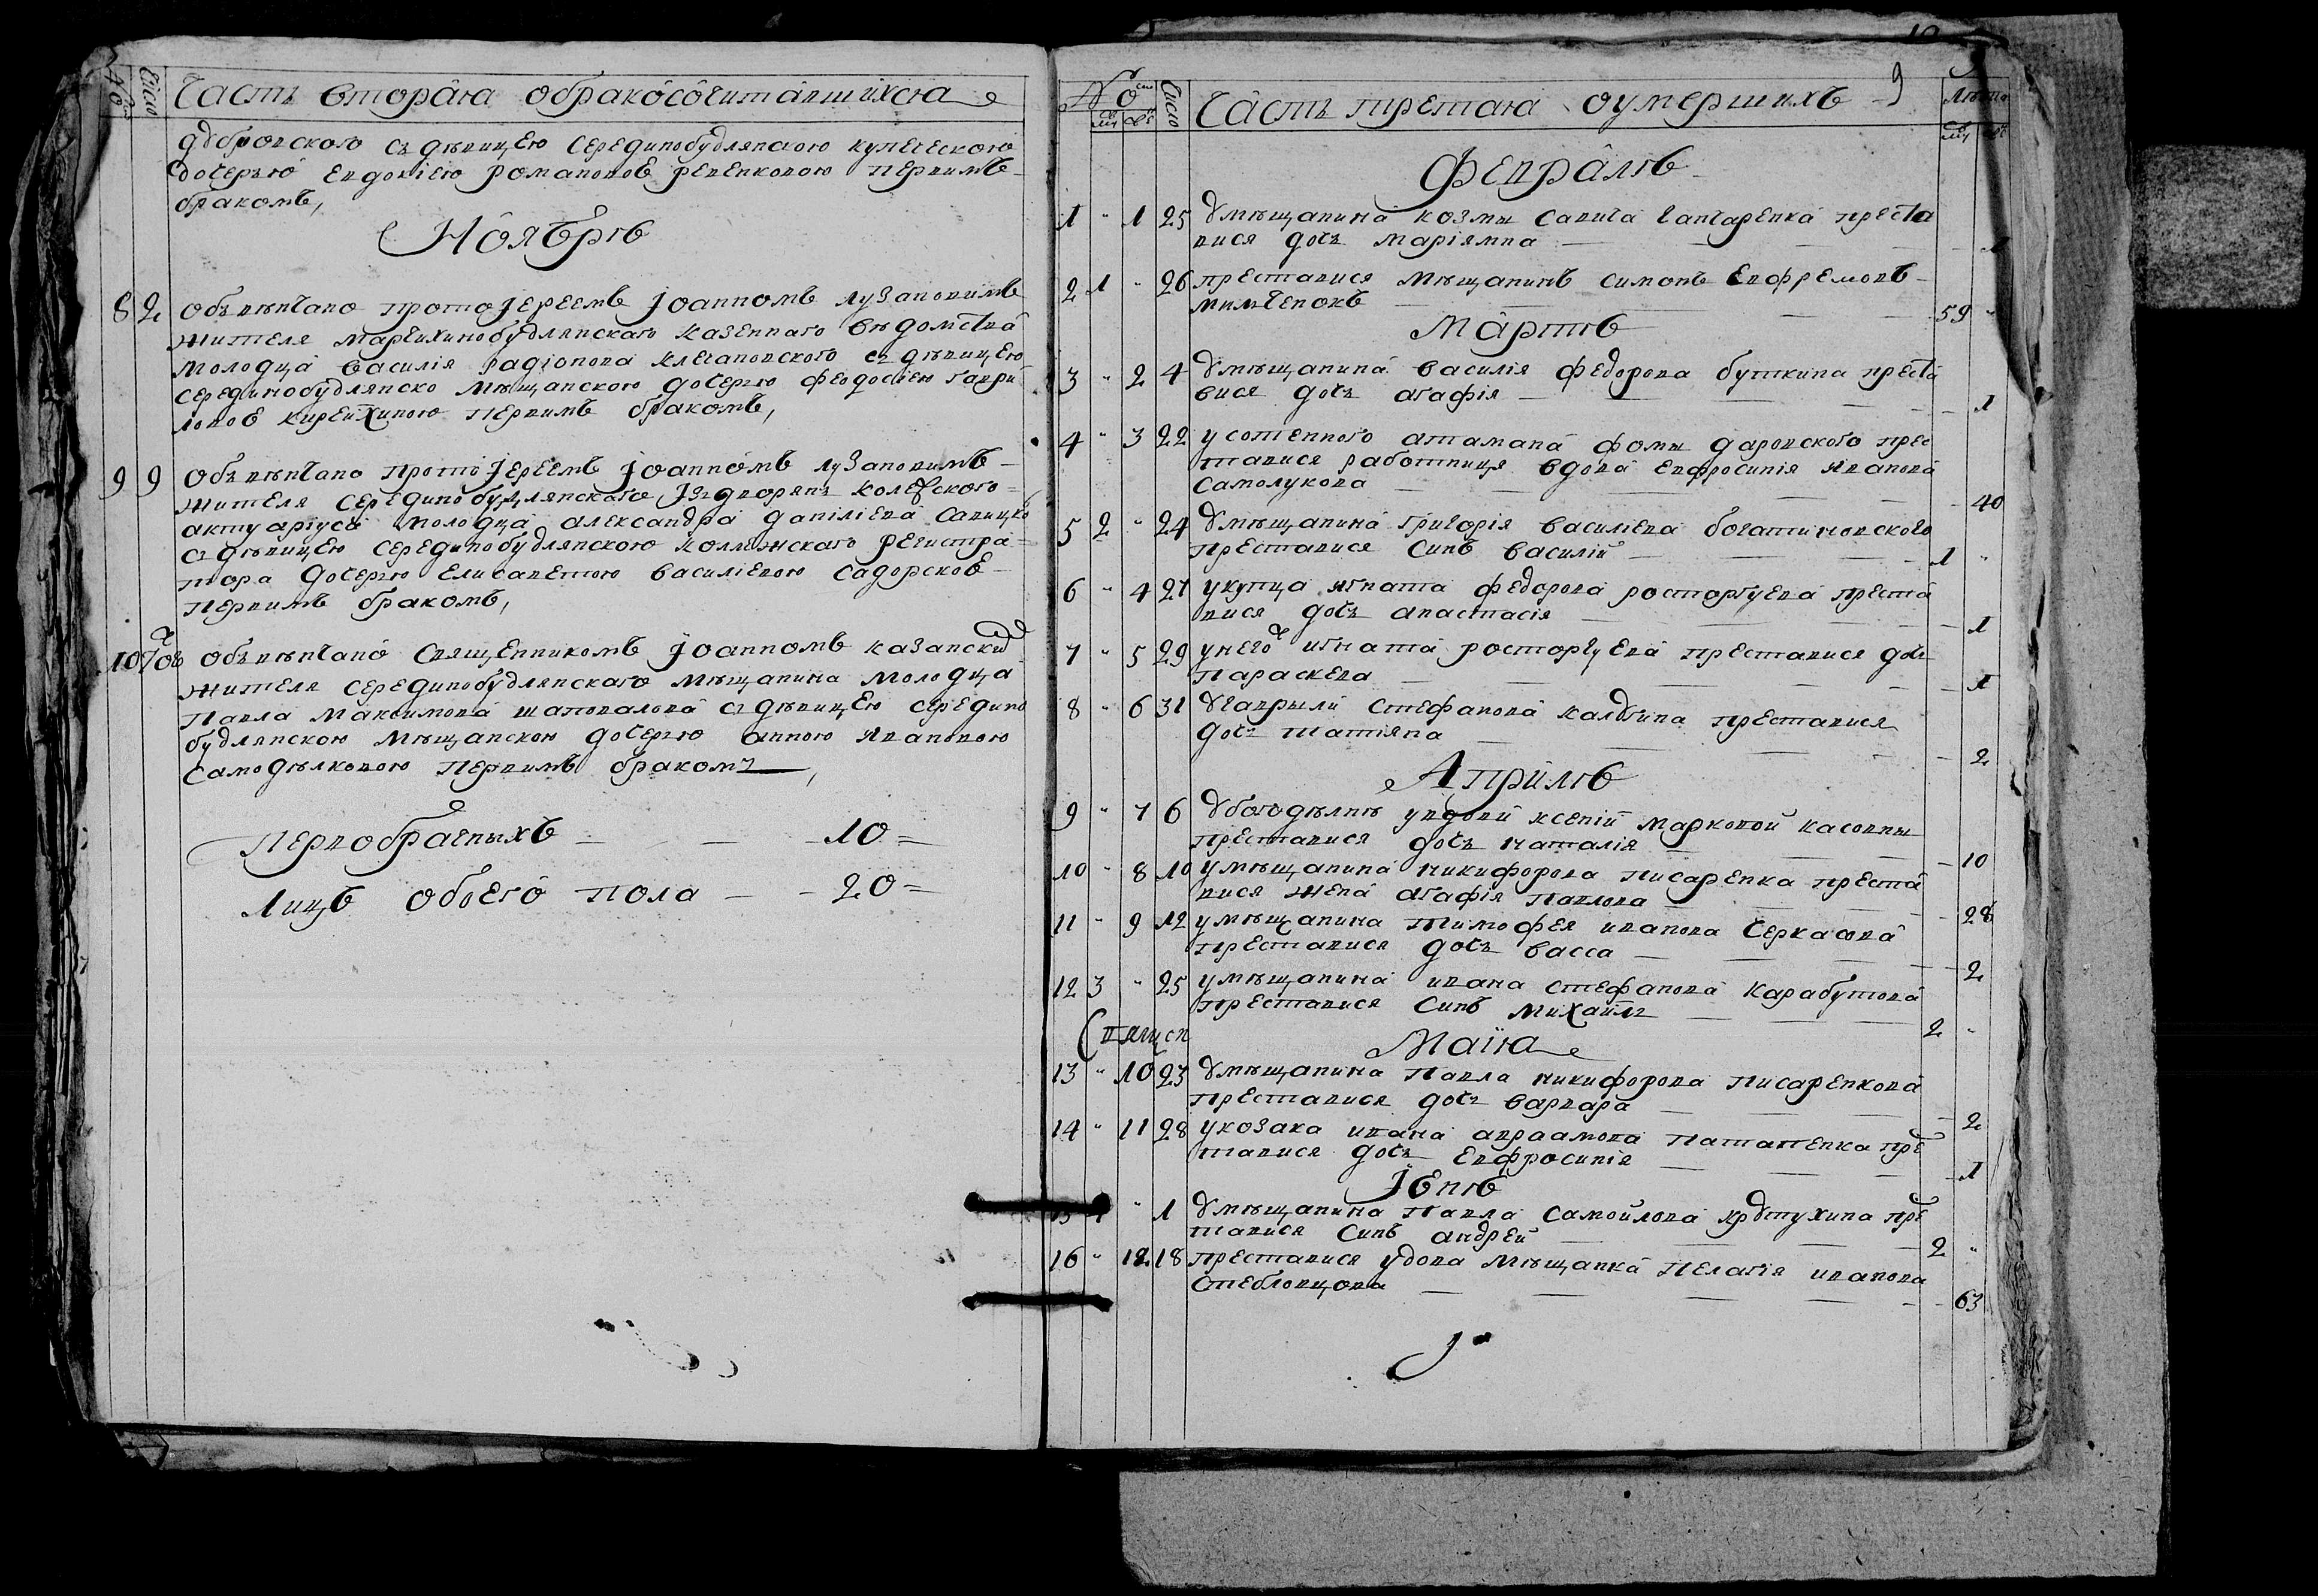 № Число Часть вторая обракосочитавшихся
Дубровского съ девицею середино будлянскою купеческою
дочерью Евдокіею Романовое Ревенковою первимъ
бракомъ,
Ноябрь
8 2 Объвѣнчано протоіереемъ Іоанномъ Лузановимъ
жителя Марчихинобудлянскаго казеннаго вѣдомства
молодца Василія Радіонова Клечановского съ дѣвицею
серединобудлянско мѣщанскою дочерью Феодосіею Гаври
ловое Кирейхиною первимъ бракомъ,
9 9 Объвѣнчано протоіереемъ Іоанномъ Лузановимъ
жителя серединобудлянского изъ дворянъ колежского
актуаріуса молодца Александра Даніліева Савицко
съ дѣвицею серединобудлянскою коллежскаго регистра
тора дочерью Елисаветою Василіевою Садорское
первимъ бракомъ,
10 тогож Объвѣнчано священникомъ Іоанномъ Казанским
жителя серединобудлянскаго мѣщанина молодца
Павла Максимова Шаповалова съ дѣвицею середино
будлянскою мѣщанскою дочерью Анною Ивановою
Самодѣлковою первимъ бракомъ,
первобрачныхъ 10
Лицъ обоего пола 20
9
№ Число Часть третая оумершихъ Лѣта
Февраль
1 " 1 25 У мѣщанина Козмы Савича Гангаренка преста
вися дочъ Маріямна 1
2 1 " 26 преставися мѣщанинъ Симонъ Евфремовъ
Мимченокъ 59 "
Мартъ
3 " 2 4 У мѣщанина Василія Федорова Буткина преста
вися дочъ Агафія 1
4 " 3 22 у сотенного атамана Фомы Даровского прес
тавися работница вдова Евфросинія Иванова
Самолукова 40
5 2 " 24 У мѣщанина Григорія Василіева Богатиновского
преставися синъ Василій 1 "
6 " 4 27 у купца Игната Федорова Росторгуева преста
вися дочъ Анастасія 1
7 " 5 29 у него ж Игната Росторгуева преставися дочъ
Параскева 1
8 " 6 31 У Гаврыли Стефанова Калугина преставися
дочъ Татіяна 2
Апріль
9 " 7 6 У богодѣлнѣ у вдовй Ксеніи Марковой Касовны
преставися дочъ Наталія 10
10 " 8 10 у мѣщанина Никифорова Писаренка преста
вися жена Агафія Павлова 28
11 " 9 12 у мѣщанина Тимофея Иванова Черкасова
преставися дочъ Васса 2
12 3 " 25 у мѣщанина Ивана Стефанова Карабутова
преставися синъ Михаилъ 2 "
Маія
13 " 10 23 У мѣщанина Павла Никифорова Писаренкова
преставися дочъ Варвара 2
14 " 11 28 у козака Ивана Авраамова Патапенка прес
тавися дочъ Евфросинія 1
Іюнь
15 4 " 1 У мѣщанина Павла Самойлова Хрустухина прес
тавися синъ Андрей 2 "
16 " 12 18 преставися удова мѣщанка Пелагія Иванова
Стебловцова 63